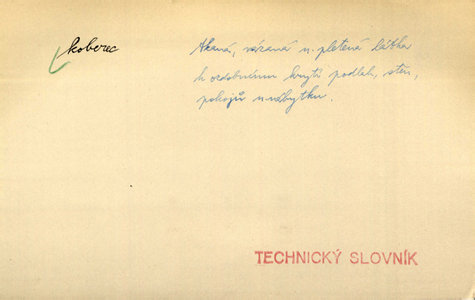 koberec
tkaná, vázaná n. pletená látka
k ozdobnému krytí podlah, stěn,
pokojů n. nábytku.
TECHNICKÝ SLOVNÍK